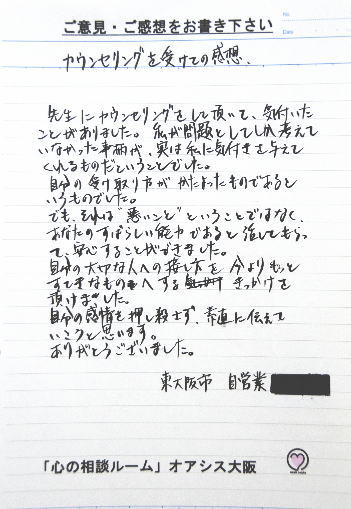 ご意見・ご感想をお書き下さい
No.
Date
カウンセリングを受けての感想.
先生にカウンセリングをして頂いて、気付いた
ことがありました。私が問題としてしか考えて
いなかった事柄が、実は私に気付きを与えて
くれるものだということでした。
自分の受け取り方が かたよったものであると
いうものでした。
でも、それは"悪いこと"ということではなく、
あなたのすばらしい能力であると 話してもらっ
て、安心することができました。
自分の大切な人への接し方を 今よりもっと
すてきなものへする きっかけを
頂けました。
自分の感情を押し殺さず、素直に伝えて
いこうと思います。
ありがとうございました。
東大阪市 自営業
「心の相談ルーム」オアシス大阪